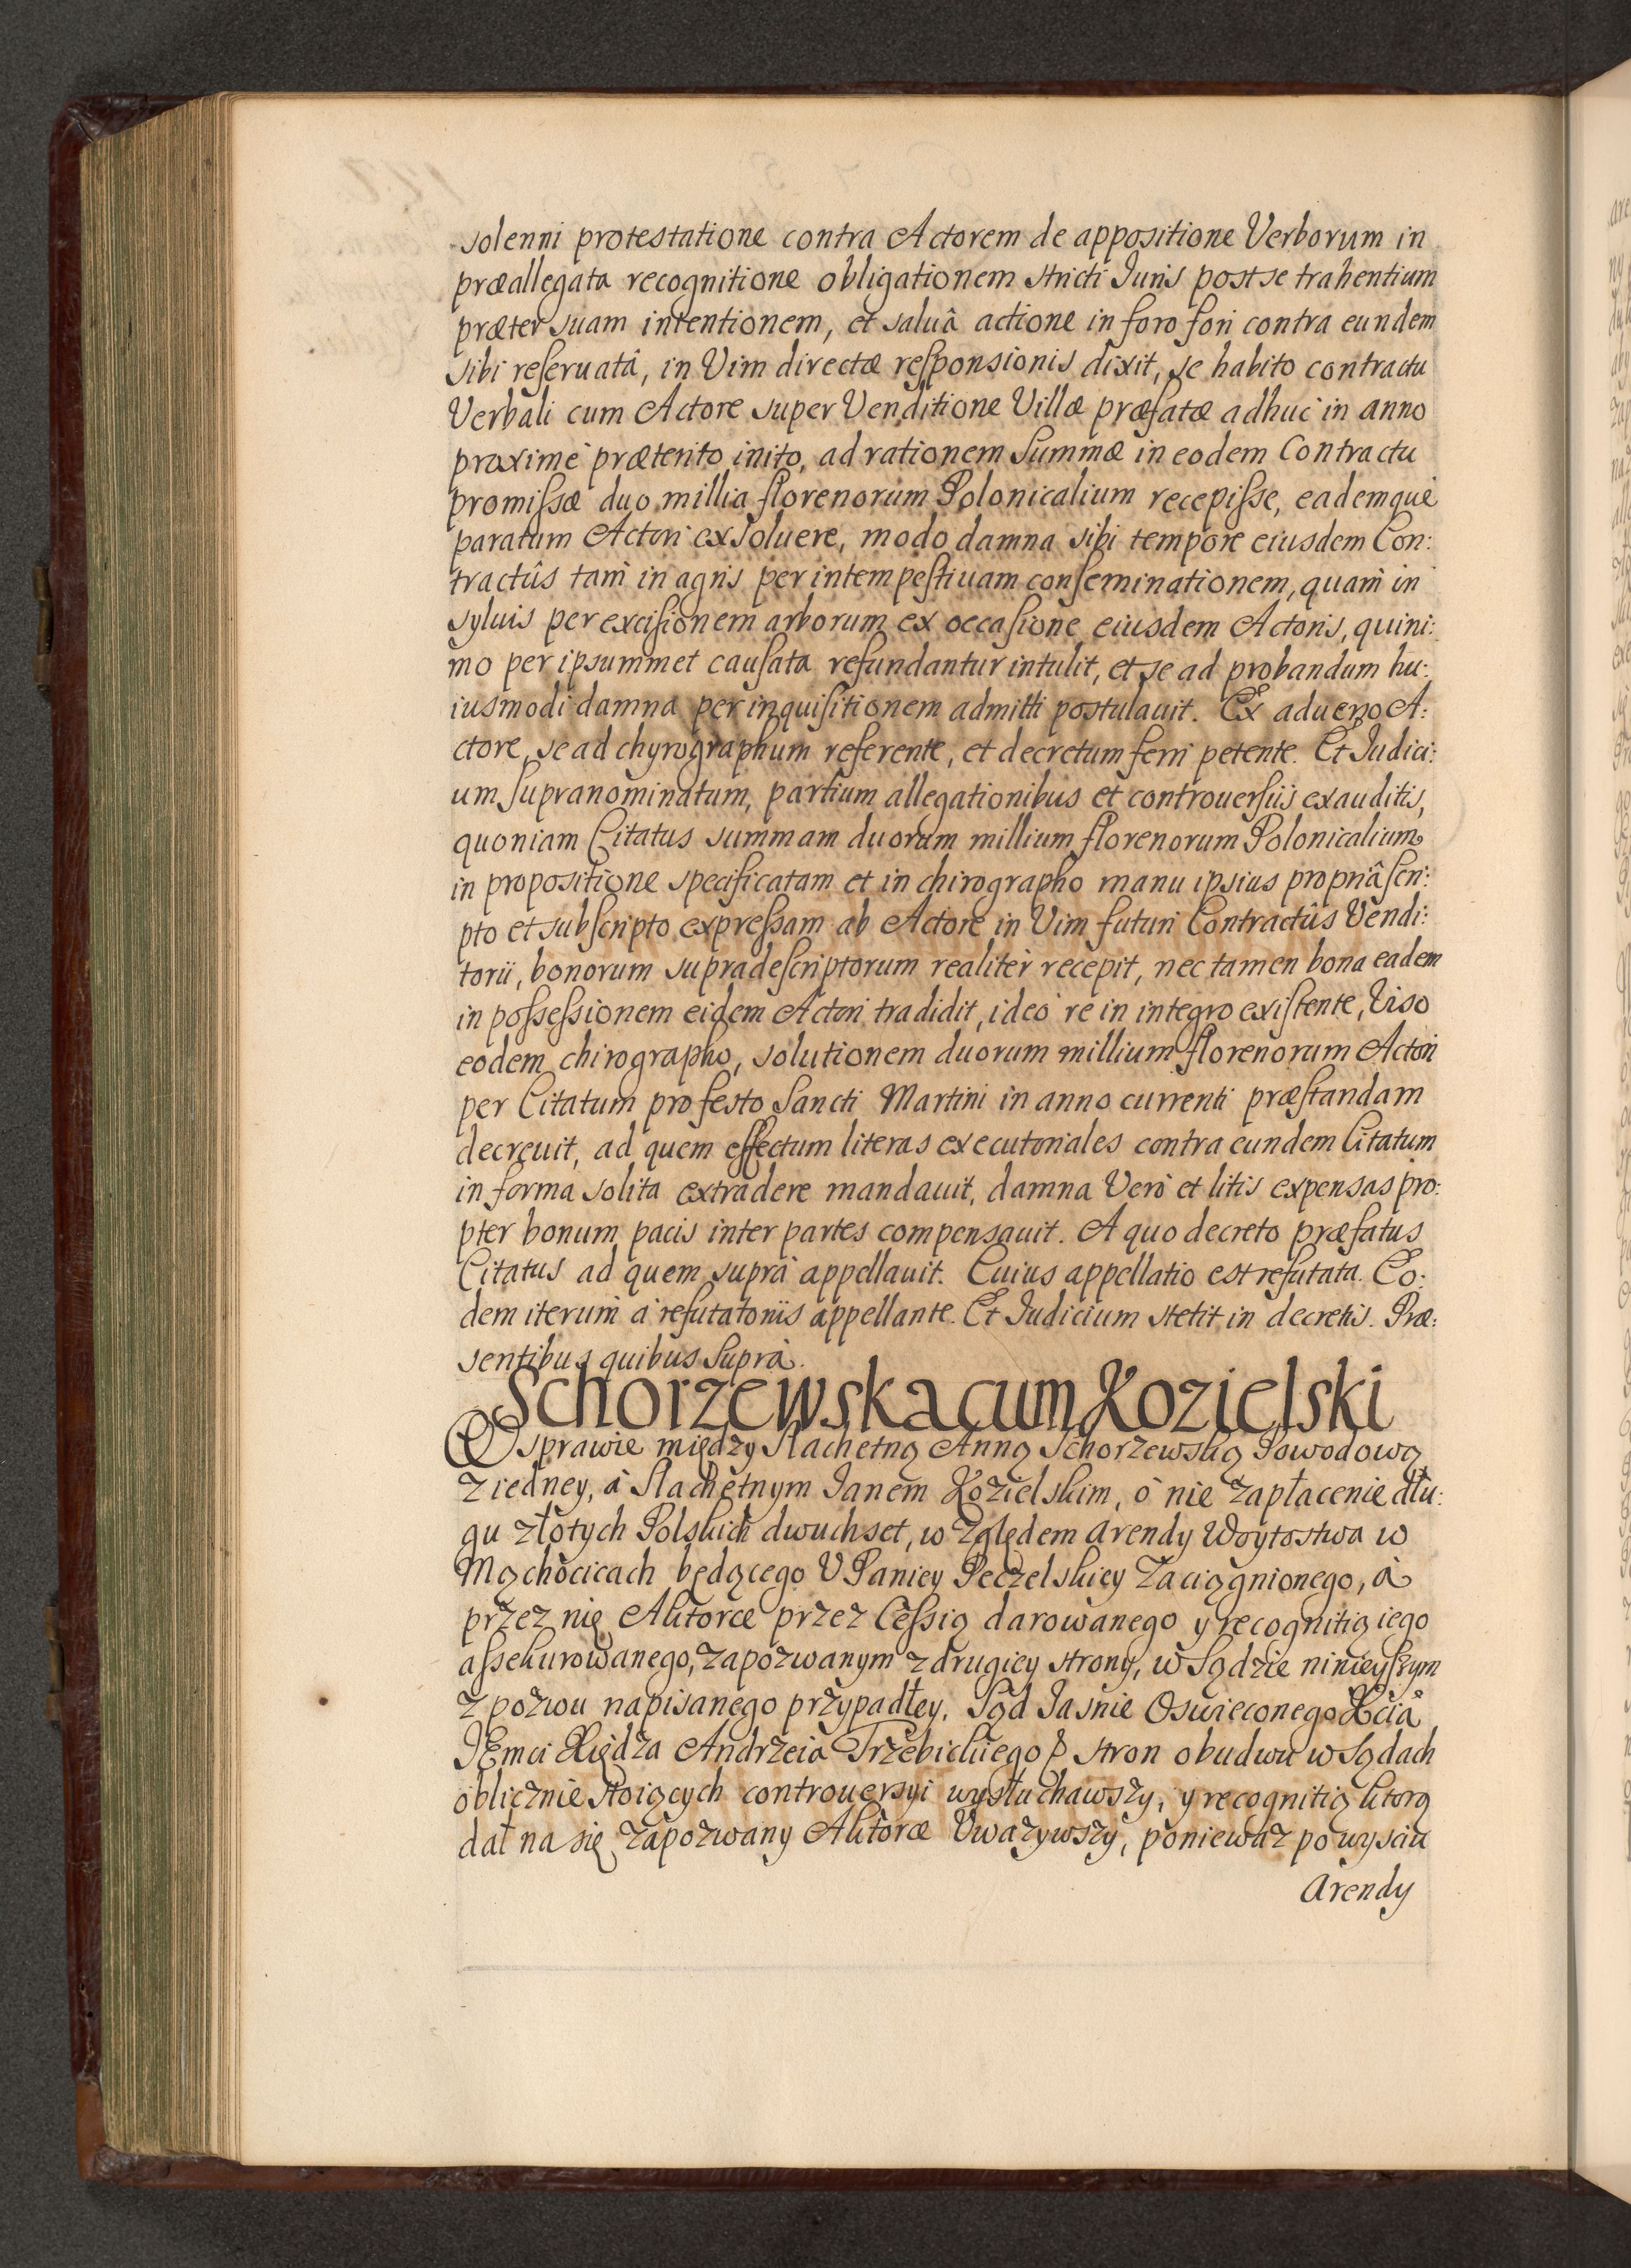 solenni protestatione contra Actorem de appositione Verborum in
præallegata recognitione obligationem stricti Iuris post se trahentium
præter suam intentionem, et saluâ actione in foro fori contra eundem
sibi reseruatâ, in Vim directæ responsionis dixit, se habito contractu
Verbali cum Actore super Venditione Villæ præfatæ adhuc in anno
proximè præterito inito, ad rationem Summæ in eodem Contractu
promissæ duo millia florenorum Polonicalium recepisse, eademque
paratum Actori exsoluere, modo damna sibi tempore eiusdem Con:
tractûs tam in agris per intempestiuam conseminationem, quàm in
syluis per excisionem arborum ex occasione eiusdem Actoris, quini:
mo per ipsummet causata refundantur intulit, et se ad probandum hu:
iusmodi damna per inquisitionem admitti postulauit. Ex aduerso A:
ctore, se ad chyrographum referente, et decretum ferri petente. Et Iudici:
um supranominatum, partium allegationibus et controuersiis exauditis,
quoniam Citatus summam duorum millium florenorum Polonicalium
in propositione specificatam et in chirographo manu ipsius propriâ scri:
pto et subscripto expressam ab Actore in Vim futuri Contractûs Vendi:
torii, bonorum supradescriptorum realiter recepit, nec tamen bona eadem
in possessionem eidem Actori tradidit, ideò re in integro existente, Viso
eodem chirographo, solutionem duorum millium florenorum Actori
per Citatum pro festo Sancti Martini in anno currenti præstandam
decreuit, ad quem effectum literas executoriales contra eundem Citatum
in forma solita extradere mandauit, damna Verò et litis expensas pro:
pter bonum pacis inter partes compensauit. A quo decreto præfatus
Citatus ad quem suprà appellauit. Cuius appellatio est refutata. Eo:
dem iterum à refutatoriis appellante. Et Iudicium stetit in decretis. Præ:
sentibus quibus Suprà.
Schorzewska cum Kozielski
W sprawie między Slachetną Anną Schorzewską Powodową
z iedney, á Slachetnym Janem Kozielskim, ò nie zapłacenie dłu:
gu złotych Polskich dwuchset, w zględem arendy Woytostwa w
Mąchocicach będącego V Paniey Peczelskiey zaciągnionego, á
przez nię Aktorce przez Cessią darowanego y recognitią iego
assekurowanego, zapozwanym z drugiey strony, w Sądzie ninieyszym
z pozwu napisanego przypadłey. Sąd Jasnie Oswieconego Xcia
JEmci Xiędza Andrzeia Trzebickiego &c stron obudwu w Sądach
oblicznie stoiących controuersyi wysłuchawszy, y recognitią ktorą
dał na się zapozwany Aktorce Vwazywszy, poniewaz po wysciu
Arendy